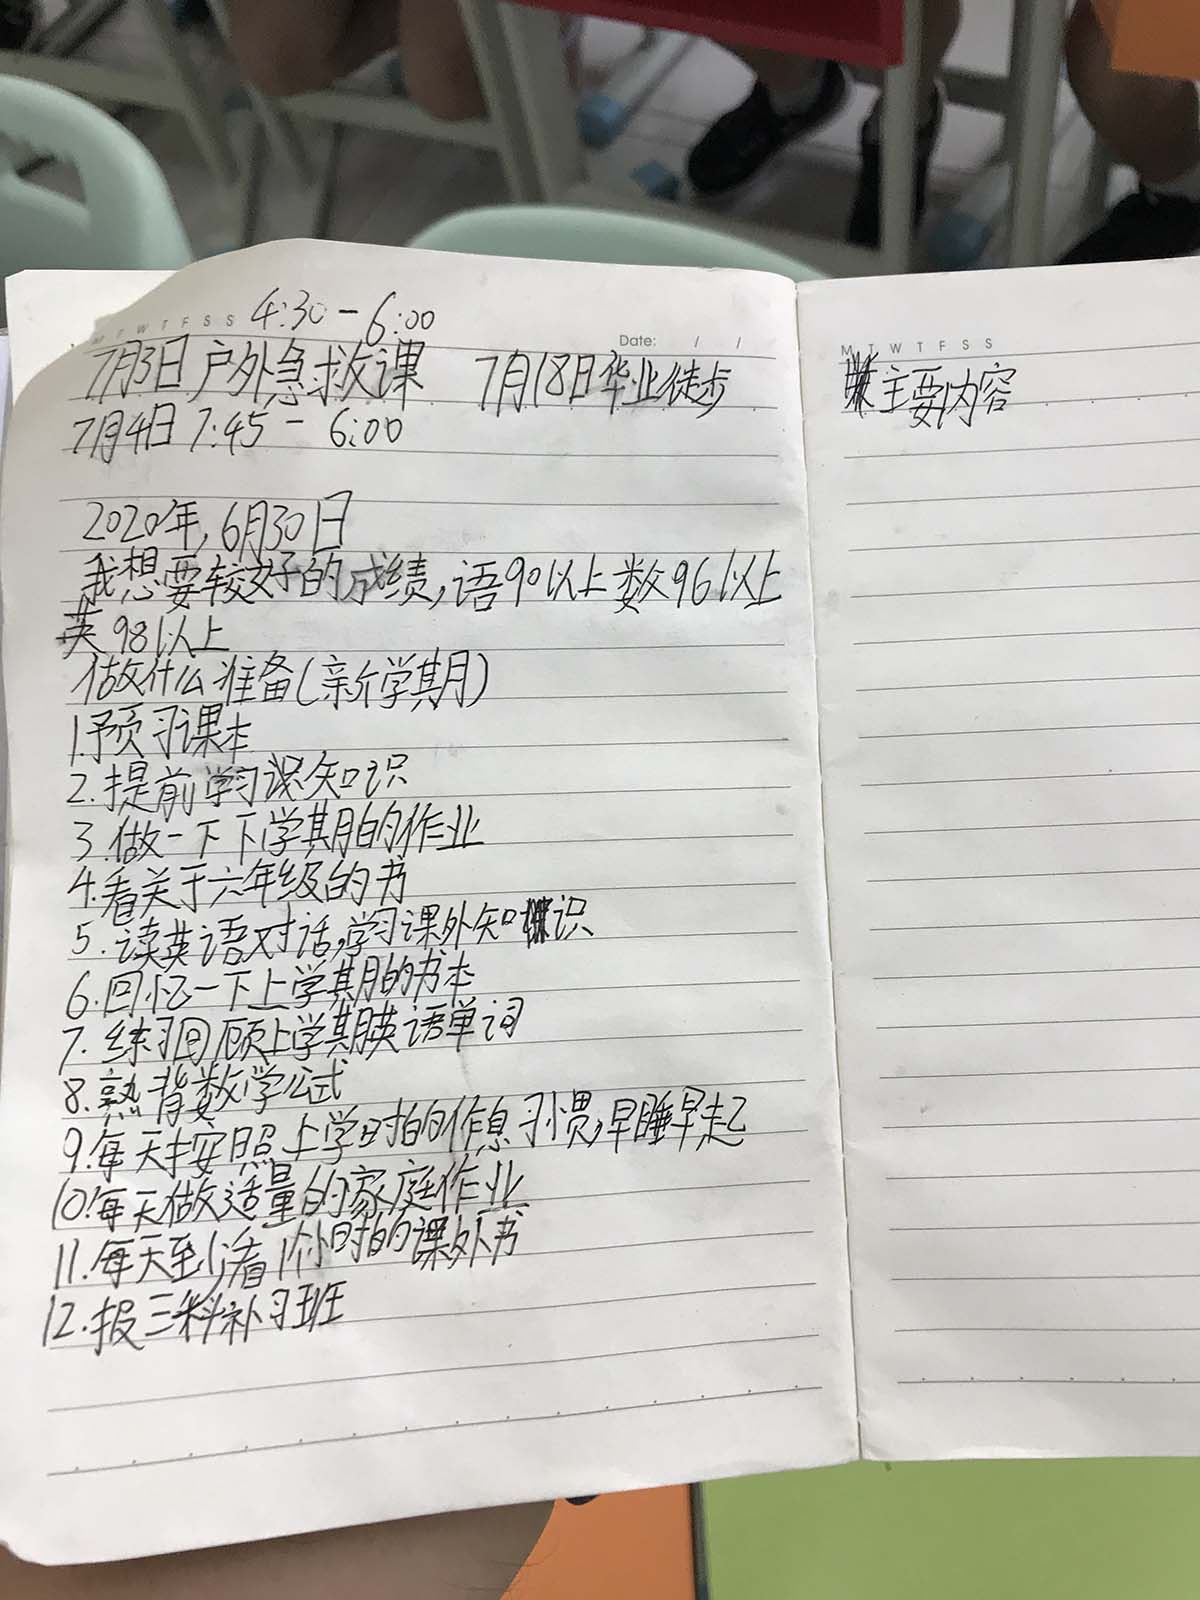 M T W T F S S 4:30-6:00
Date: / /
7月3日户外急救课 7月18日华业徒步
7月4日 7:45 - 6:00
2020年,6月30日
我想要较好的成绩,语90以上数96以上
英98以上
做什么准备(新学期)
1.预习课本
2.提前学习课知识
3.做一下下学期的作业
4.看关于六年级的书
5.读英语对话,学习课外知识
6.回忆一下上学期的书本
7.练习回顾上学期英语单词
8.熟背数学公式
9.每天按照上学时的作息习惯,早睡早起
10.每天做适量的家庭作业
11.每天至少看1个小时的课外书
12.报三科补习班
M T W T F S S
主要内容